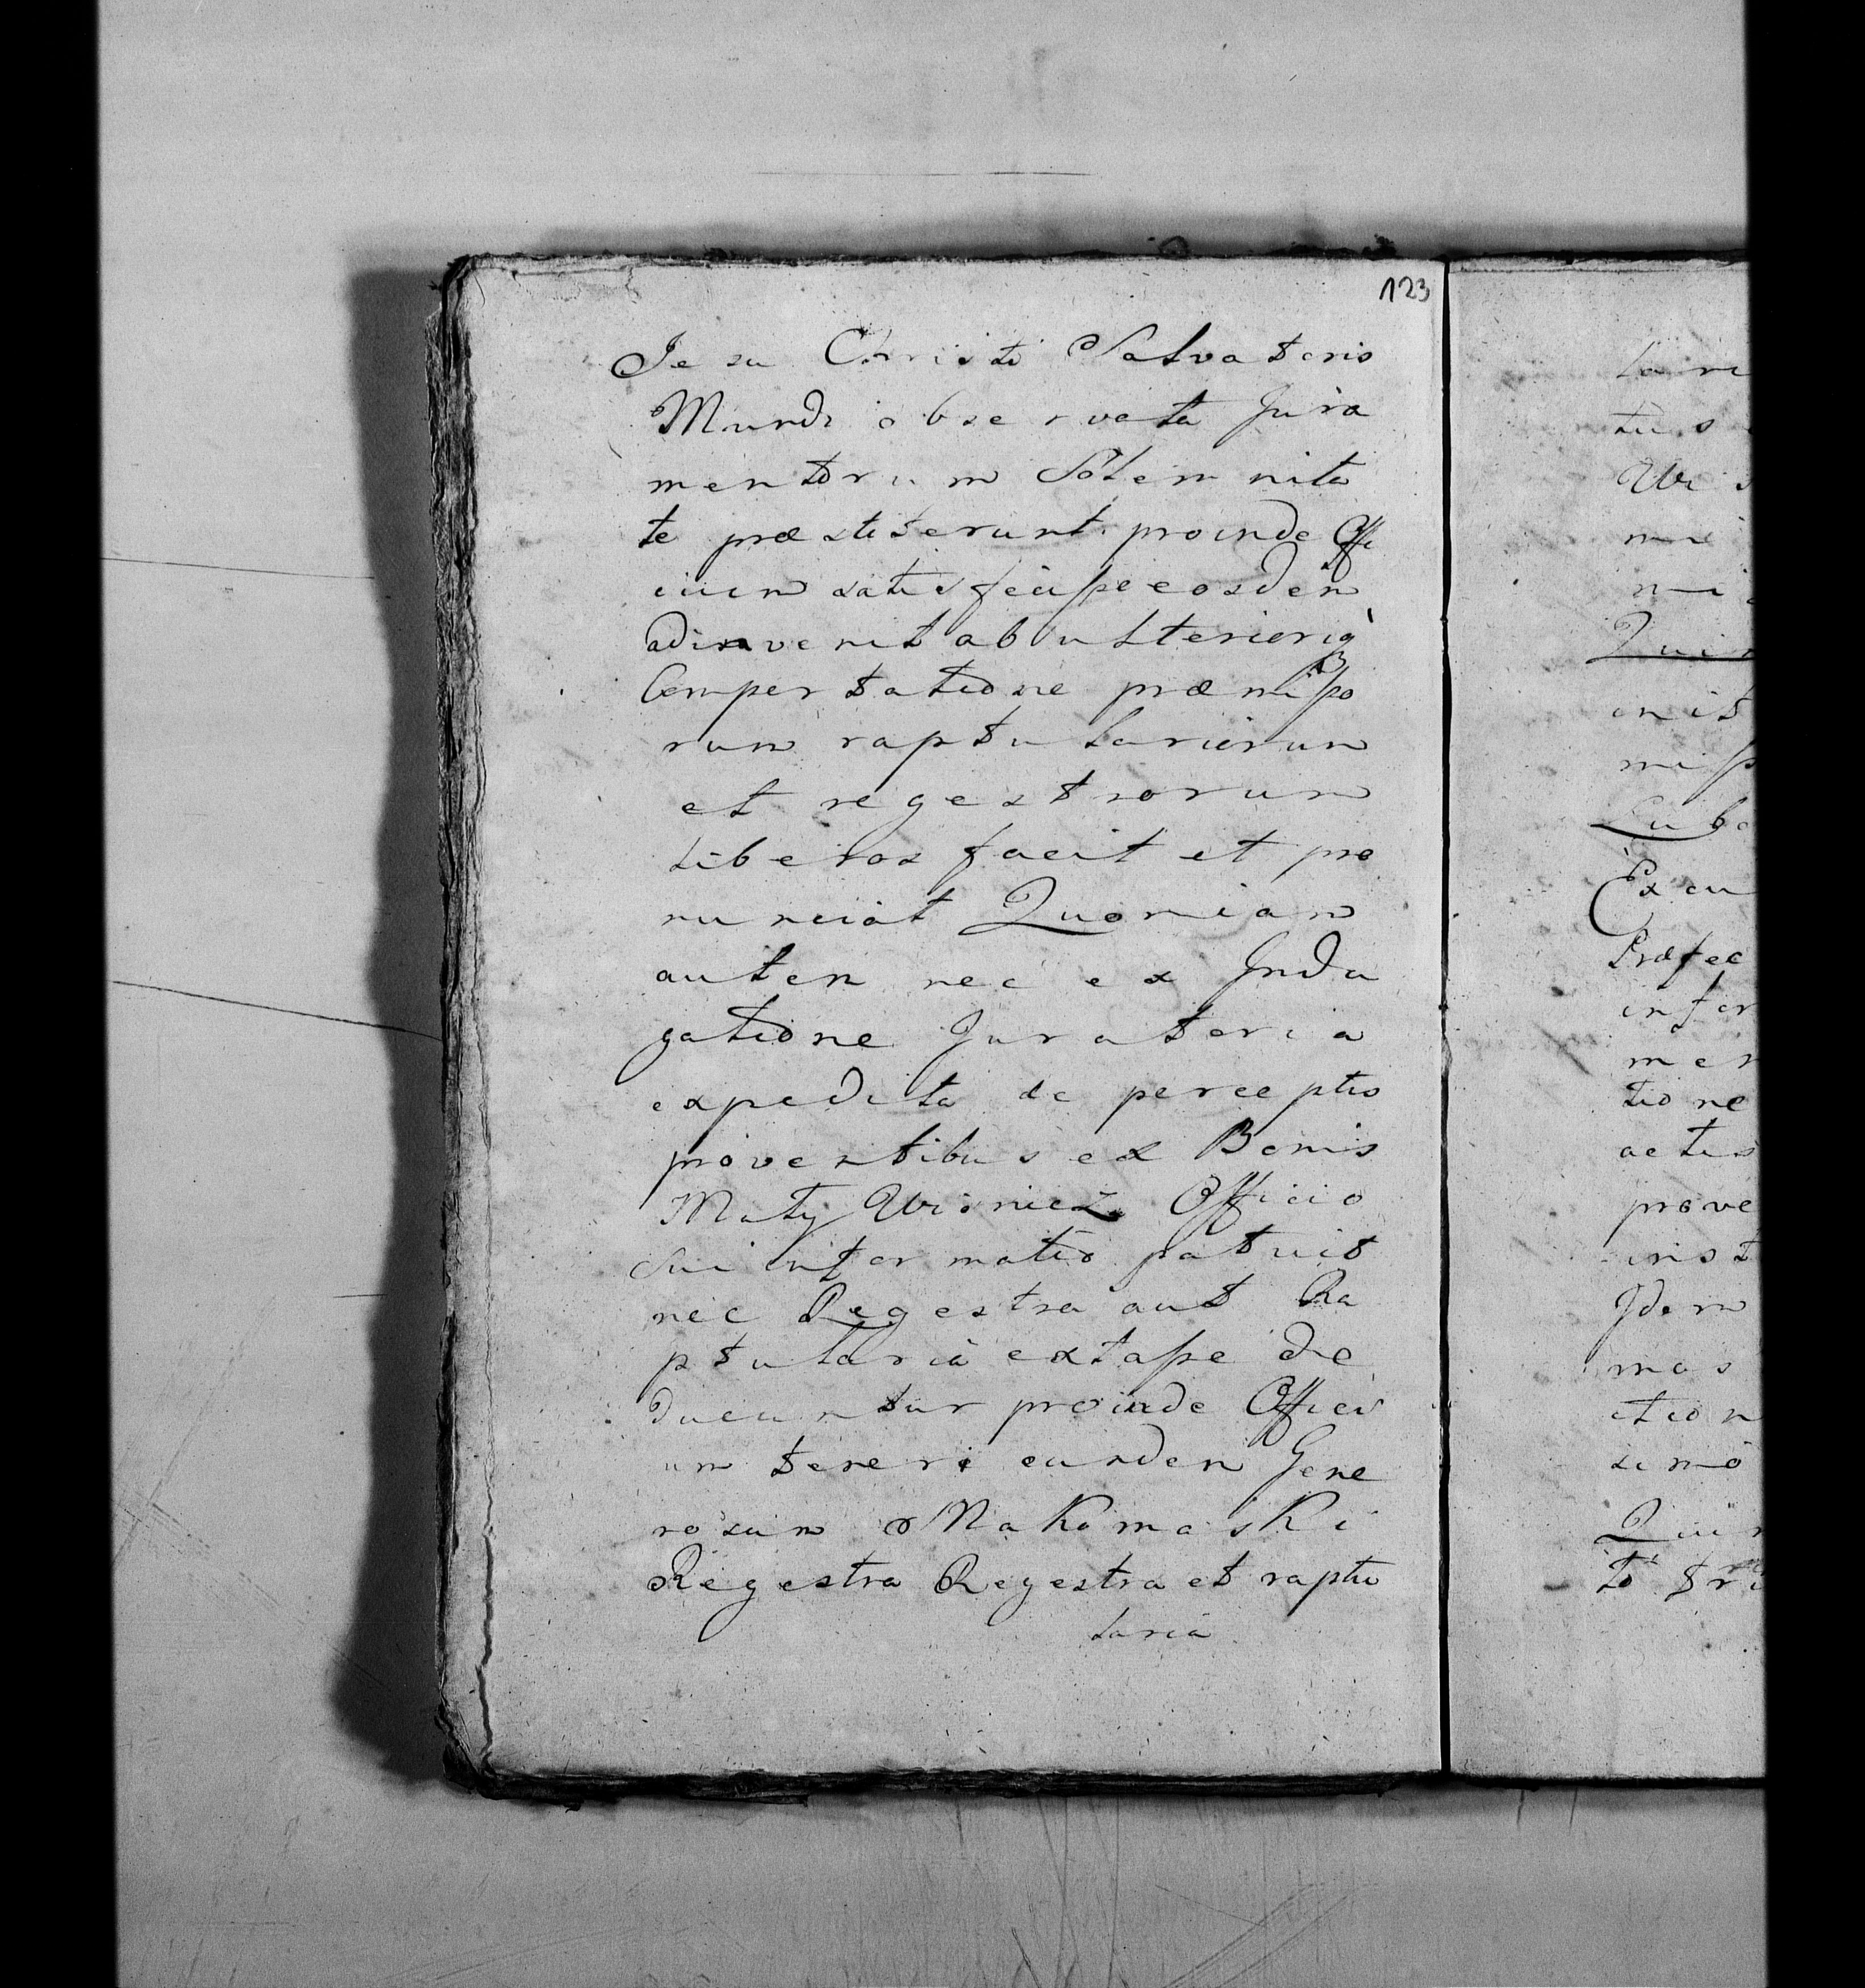 123
Jesu Christi Salvatoris
Mundi observata Jura
mentorum Solemnita
te præstiterunt proinde Offi
cium satisfecisse eosdem
adinvenit ab ulteriori
Comportatione præmisso
rum raptulariorum
et regestrorum
liberos facit et pro
nunciat Quoniam
autem nec ex Inda
gatione Juratoria
expedita de perceptis
proventibus ex Bonis
Mały Wisnicz Officio
Sui informatio patuit
nec Regestra aut Ra
ptularia extasse de
ducuntur proinde Offici
um teneri eundem Gene
rosum Makomaski
Regestra Regestra et raptu
laria
lari
tus
Wis
mi
mi
Quin
init
miss
Lubo
Ex cu
Præfec
infor
men
tione
actis
prove
inst
Idem
mos
ition
simo
Quin
to tri